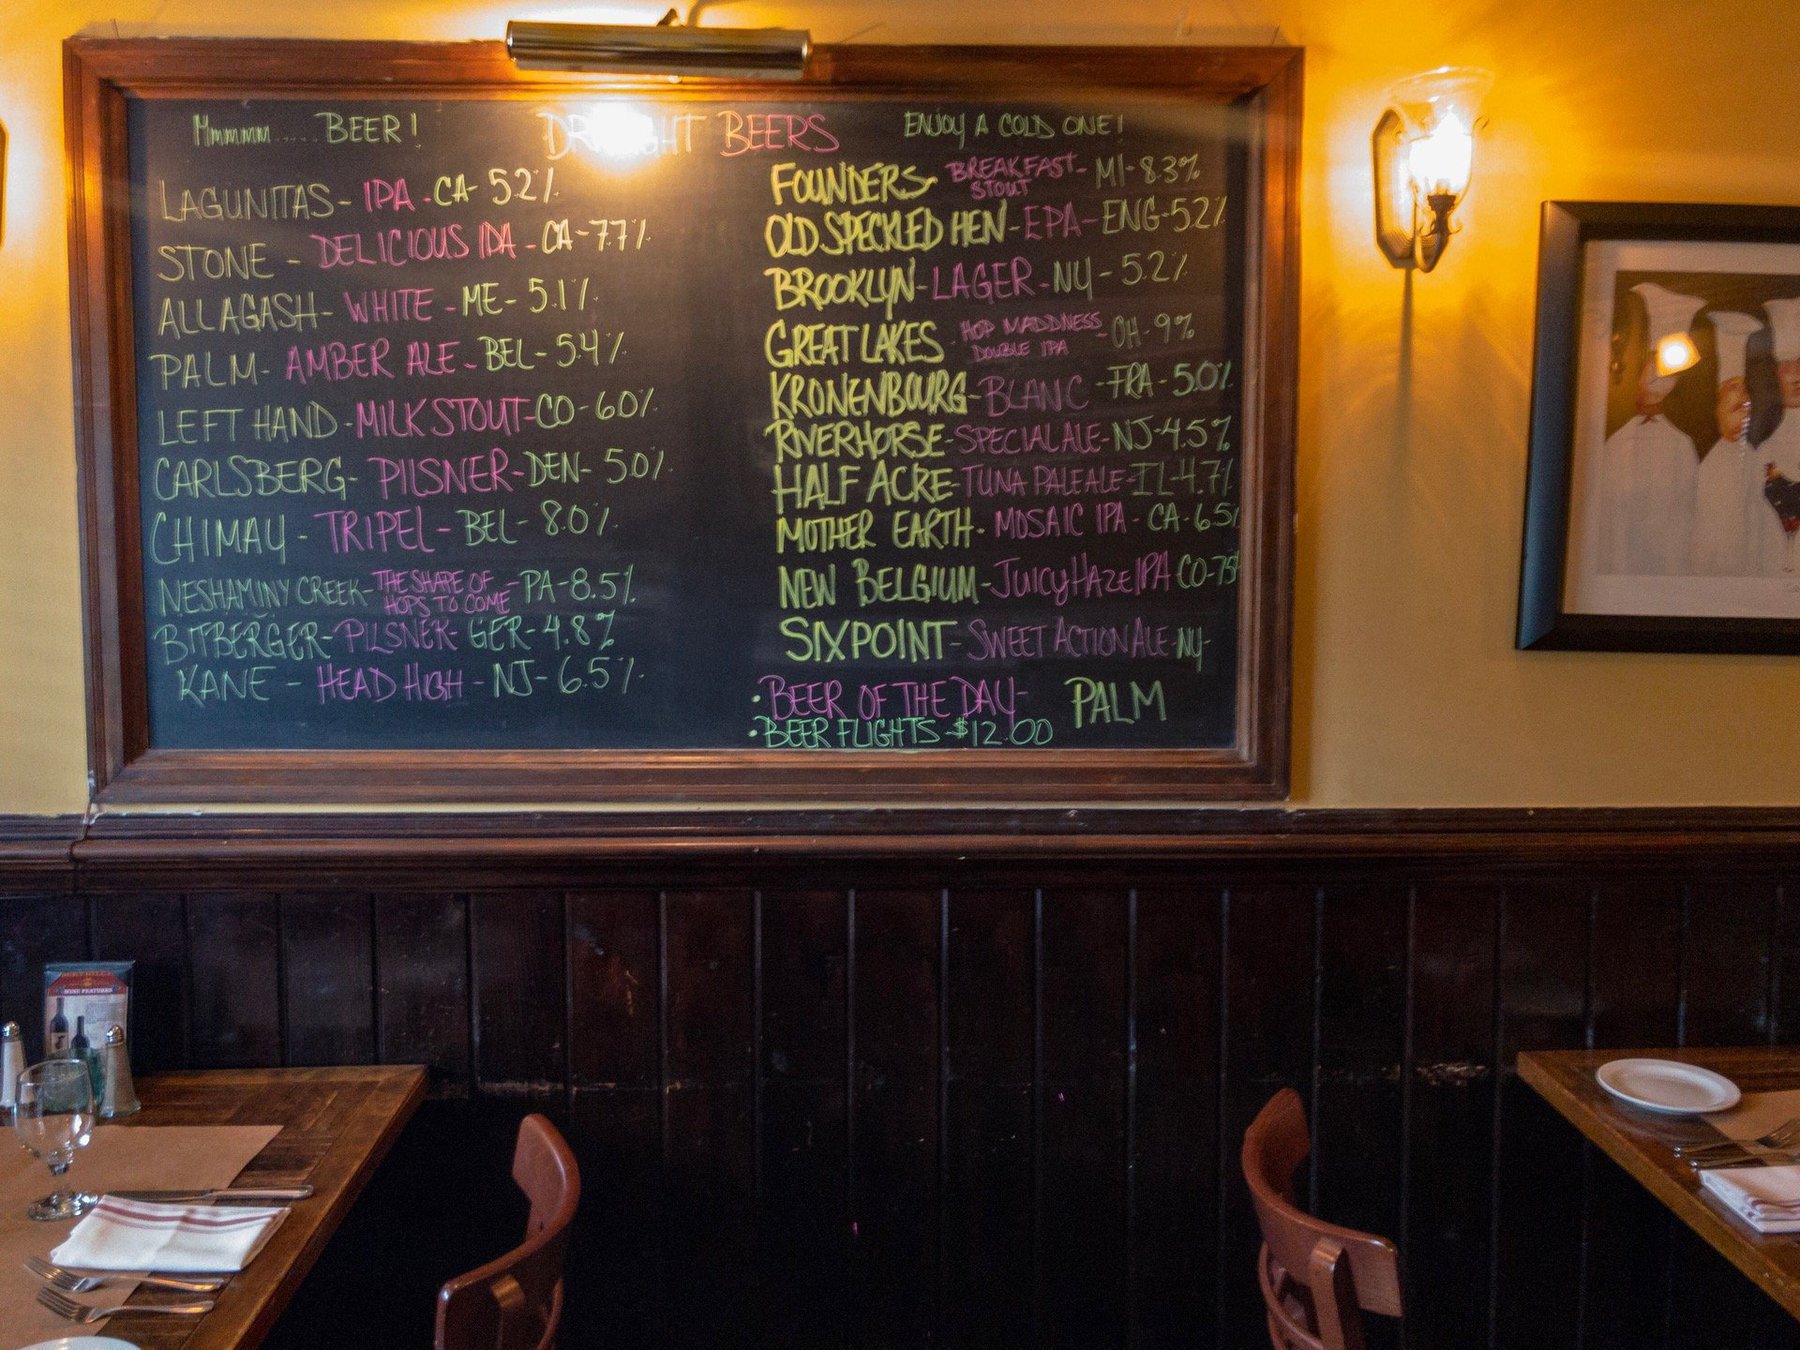 Mmmmm..... BEER!
DRAUGHT BEERS
ENJOY A COLD ONE!
LAGUNITAS- IPA - CA- 5.2%
STONE - DELICIOUS IPA - CA- 7.7%
ALLAGASH- WHITE - ME- 5.1%
PALM- AMBER ALE - BEL- 5.4%
LEFT HAND - MILK STOUT- CO- 6.0%
CARLSBERG- PILSNER- DEN- 5.0%
CHIMAY - TRIPEL- BEL- 8.0%
NESHAMINY CREEK- THE SHAPE OF HOPS TO COME - PA- 8.5%
BITBERGER- PILSNER- GER- 4.8%
KANE - HEAD HIGH - NJ- 6.5%
FOUNDERS- BREAKFAST STOUT - MI- 8.3%
OLD SPECKLED HEN- EPA- ENG- 5.2%
BROOKLYN- LAGER- NY - 5.2%
GREAT LAKES - HOP MADDNESS DOUBLE IPA - OH- 9%
KRONENBOURG- BLANC - FRA- 5.0%
RIVERHORSE- SPECIAL ALE- NJ- 4.5%
HALF ACRE- TUNA PALE ALE- IL- 4.7%
MOTHER EARTH- MOSAIC IPA- CA- 6.5%
NEW BELGIUM- JUICY HAZE IPA CO- 7.5%
SIXPOINT- SWEET ACTION ALE- NY-
• BEER OF THE DAY- PALM
• BEER FLIGHTS - $12.00
WINE FEATURES